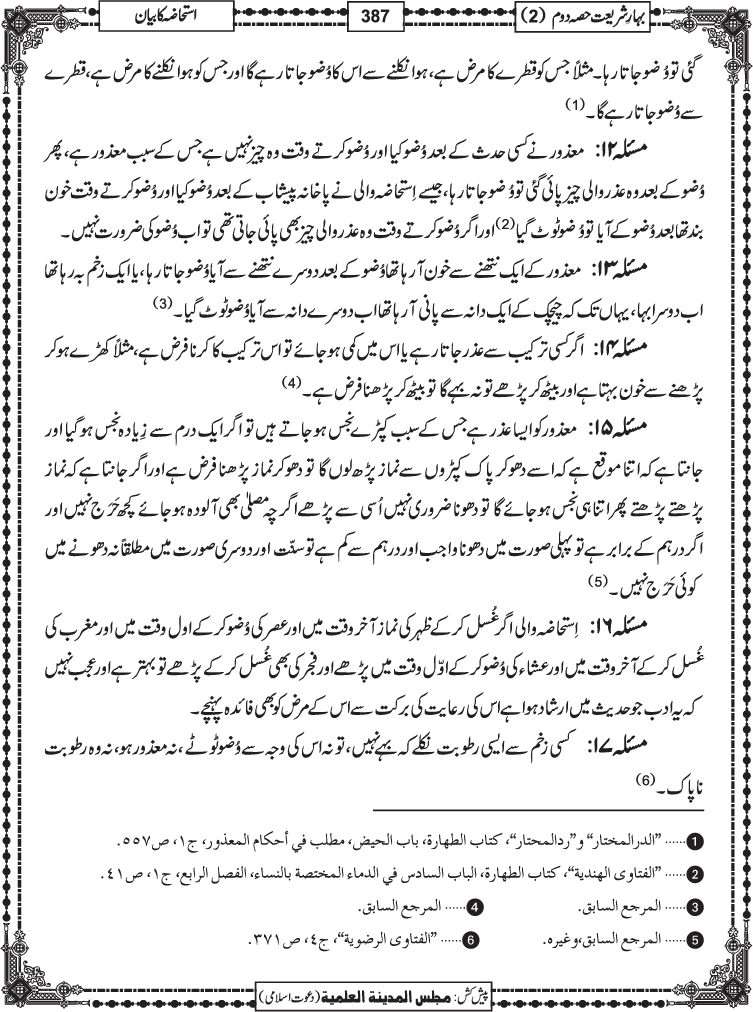 بہارِ شریعت حصہ دوم (2)
387
استحاضہ کا بیان
گئی تو وُضو جاتا رہا۔ مثلاً جس کو قطرے کا مرض ہے، ہوا نکلنے سے اس کا وُضو جاتا رہے گا اور جس کو ہوا نکلنے کا مرض ہے، قطرے
سے وُضو جاتا رہے گا۔ (1)
مسئلہ ۱۲: معذور نے کسی حدث کے بعد وُضو کیا اور وُضو کرتے وقت وہ چیز نہیں ہے جس کے سبب معذور ہے، پھر
وُضو کے بعد وہ عذر والی چیز پائی گئی تو وُضو جاتا رہا، جیسے اِستحاضہ والی نے پاخانہ پیشاب کے بعد وُضو کیا اور وُضو کرتے وقت خون
بند تھا بعد وُضو کے آیا تو وُضو ٹوٹ گیا (2) اور اگر وُضو کرتے وقت وہ عذر والی چیز بھی پائی جاتی تھی تو اب وُضو کی ضرورت نہیں۔
مسئلہ ۱۳: معذور کے ایک نتھنے سے خون آرہا تھا وُضو کے بعد دوسرے نتھنے سے آیا وُضو جاتا رہا، یا ایک زخم بہ رہا تھا
اب دوسرا بہا، یہاں تک کہ چیچک کے ایک دانہ سے پانی آرہا تھا اب دوسرے دانہ سے آیا وُضو ٹوٹ گیا۔ (3)
مسئلہ ۱۴: اگر کسی ترکیب سے عذر جاتا رہے یا اس میں کمی ہو جائے تو اس ترکیب کا کرنا فرض ہے، مثلاً کھڑے ہو کر
پڑھنے سے خون بہتا ہے اور بیٹھ کر پڑھے تو نہ بہے گا تو بیٹھ کر پڑھنا فرض ہے۔ (4)
مسئلہ ۱۵: معذور کو ایسا عذر ہے جس کے سبب کپڑے نجس ہو جاتے ہیں تو اگر ایک درم سے زِیادہ نجس ہوگیا اور
جانتا ہے کہ اتنا موقع ہے کہ اسے دھو کر پاک کپڑوں سے نماز پڑھ لوں گا تو دھو کر نماز پڑھنا فرض ہے اور اگر جانتا ہے کہ نماز
پڑھتے پڑھتے پھر اتنا ہی نجس ہو جائے گا تو دھونا ضروری نہیں اُسی سے پڑھے اگرچہ مصلّٰی بھی آلودہ ہو جائے کچھ حَرَج نہیں اور
اگر درہم کے برابر ہے تو پہلی صورت میں دھونا واجب اور درہم سے کم ہے تو سنّت اور دوسری صورت میں مطلقاً نہ دھونے میں
کوئی حَرَج نہیں۔ (5)
مسئلہ ۱۶: اِستحاضہ والی اگر غُسل کر کے ظہر کی نماز آخر وقت میں اور عصر کی وُضو کر کے اول وقت میں اور مغرب کی
غُسل کر کے آخر وقت میں اور عشاء کی وُضو کر کے اوّل وقت میں پڑھے اور فجر کی بھی غُسل کر کے پڑھے تو بہتر ہے اور عجب نہیں
کہ یہ ادب جو حدیث میں ارشاد ہوا ہے اس کی رعایت کی برکت سے اس کے مرض کو بھی فائدہ پہنچے۔
مسئلہ ۱۷: کسی زخم سے ایسی رطوبت نکلے کہ بہے نہیں، تو نہ اس کی وجہ سے وُضو ٹوٹے ، نہ معذور ہو، نہ وہ رطوبت
ناپاک۔ (6)
1 ...... ”الدرالمختار“ و”ردالمحتار“، كتاب الطهارة، باب الحيض، مطلب في أحكام المعذور، ج١، ص٥٥٧.
2 ...... ”الفتاوى الهندية“، كتاب الطهارة، الباب السادس في الدماء المختصة بالنساء، الفصل الرابع، ج١، ص٤١.
3 ...... المرجع السابق. 4 ...... المرجع السابق.
5 ...... المرجع السابق،وغيره. 6 ...... ”الفتاوى الرضوية“، ج٤، ص٣٧١.
پیش کش: مجلس المدینة العلمیة (دعوتِ اسلامی)